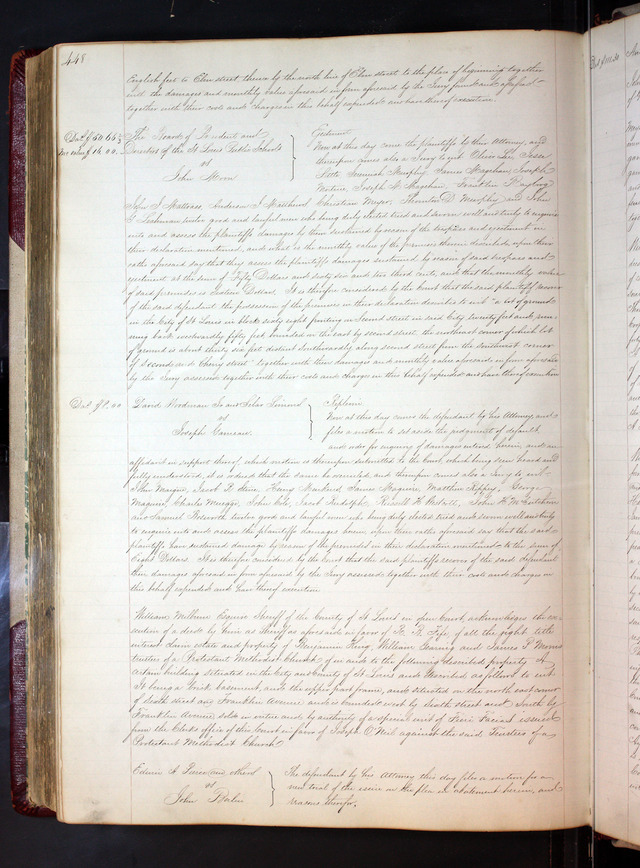 448
English feet to Elm street thence by the north line of Elm street to the place of beginning together
with the damages and monthly value aforesaid in form aforesaid by the Jury found and assessed
together with their costs and charges in this behalf expended and have thereof execution.
The Board of President and
Directors of the St Louis Public Schools
vs
John Horn
Ejectment
Now at this day come the plaintiffs by their Attorney, and
thereupon comes also a Jury to wit Oliver Jesse
Jeremiah Murphy, James Joseph
Joseph W. Franklin
John J. Mattress, Andrew J. Christian Meyer, Thornton D. Murphy and John
twelve good and lawful men who being duly elected tried and sworn well and truly to enquire
into and assess the plaintiffs damages by them sustained by reason of the trespass and ejectment in
their declaration mentioned, and what is the monthly value of the premises therein described, upon their
oaths aforesaid say that they assess the plaintiffs damages sustained by reason of said trespass and
ejectment at the sum of Fifty Dollars and sixty six and two third cents, and that the monthly value
of said premises is Sixteen Dollars. It is therefore considered by the Court that the said plaintiff recover
of the said defendant the possession of the premises in their declaration described to wit "a lot of ground
in the City of St Louis in block sixty eight fronting on Second street in said City seventy feet and run-
ning back westwardly fifty feet, bounded on the east by second street the northeast corner of which lot
of ground is about thirty six feet distant southwardly along second street from the southwest corner
of Second and Cherry street" together with their damages and monthly value aforesaid in form aforesaid
by the Jury assessed together with their costs and charges in this behalf expended and have thereof execution
Dal. $8.00
David Woodman Sr and Silas
vs
Joseph
Replevin
Now at this day comes the defendant by his Attorney, and
files a motion to set aside the judgment of default
and order for inquiry of damages entered herein, and an
affidavit in support thereof, which motion is thereupon submitted to the Court, which being seen heard and
fully understood, it is ordered that the same be overruled, and thereupon comes also a Jury to wit
John Jacob Henry James Maguire, Matthew George
Maguire, Charles John Cole, Jacob Rudolph, H. John H. McCutchen
and Samuel twelve good and lawful men who being duly elected tried and sworn well and truly
to enquire into and assess the plaintiffs damages herein, upon their oaths aforesaid say that the said
plaintiffs have sustained damage by reason of the premises in their declaration mentioned to the sum of
Eight Dollars. It is therefore considered by the Court that the said plaintiffs recover of the said defendant
their damages aforesaid in form aforesaid by the Jury assessed together with their costs and charges in
this behalf expended and have thereof execution
William Milburn Esquire Sheriff of the County of St Louis in open Court, acknowledges the ex-
ecution of a deed by him as Sheriff as aforesaid in favor of Fife, of all the right title
interest claim estate and property of Benjamin King, William and James P. Morris
trustees of a Protestant Methodist Church of in and to the following described property "A
certain building situated in the City and County of St Louis and described as follows to wit
It being a brick basement, and the upper part frame, and situated on the north east corner
of Sixth street and Franklin Avenue and is bounded west by Sixth street and South by
Franklin Avenue, sold in virtue and by authority of a special writ of Fieri Facias issued
from the Clerks office of this Court in favor of Joseph O'Neil against the said Trustees of a
Protestant Methodist Church"
Edwin A. others
vs
John
The defendant by his Attorney this day files a motion for a
new trial of the issue on the plea in abatement herein, and
reasons therefor.